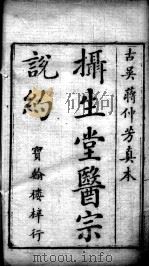 古吳蔣仲芳真本
攝生堂醫宗
說約
寶翰樓梓行
http://www.mtoou.info/